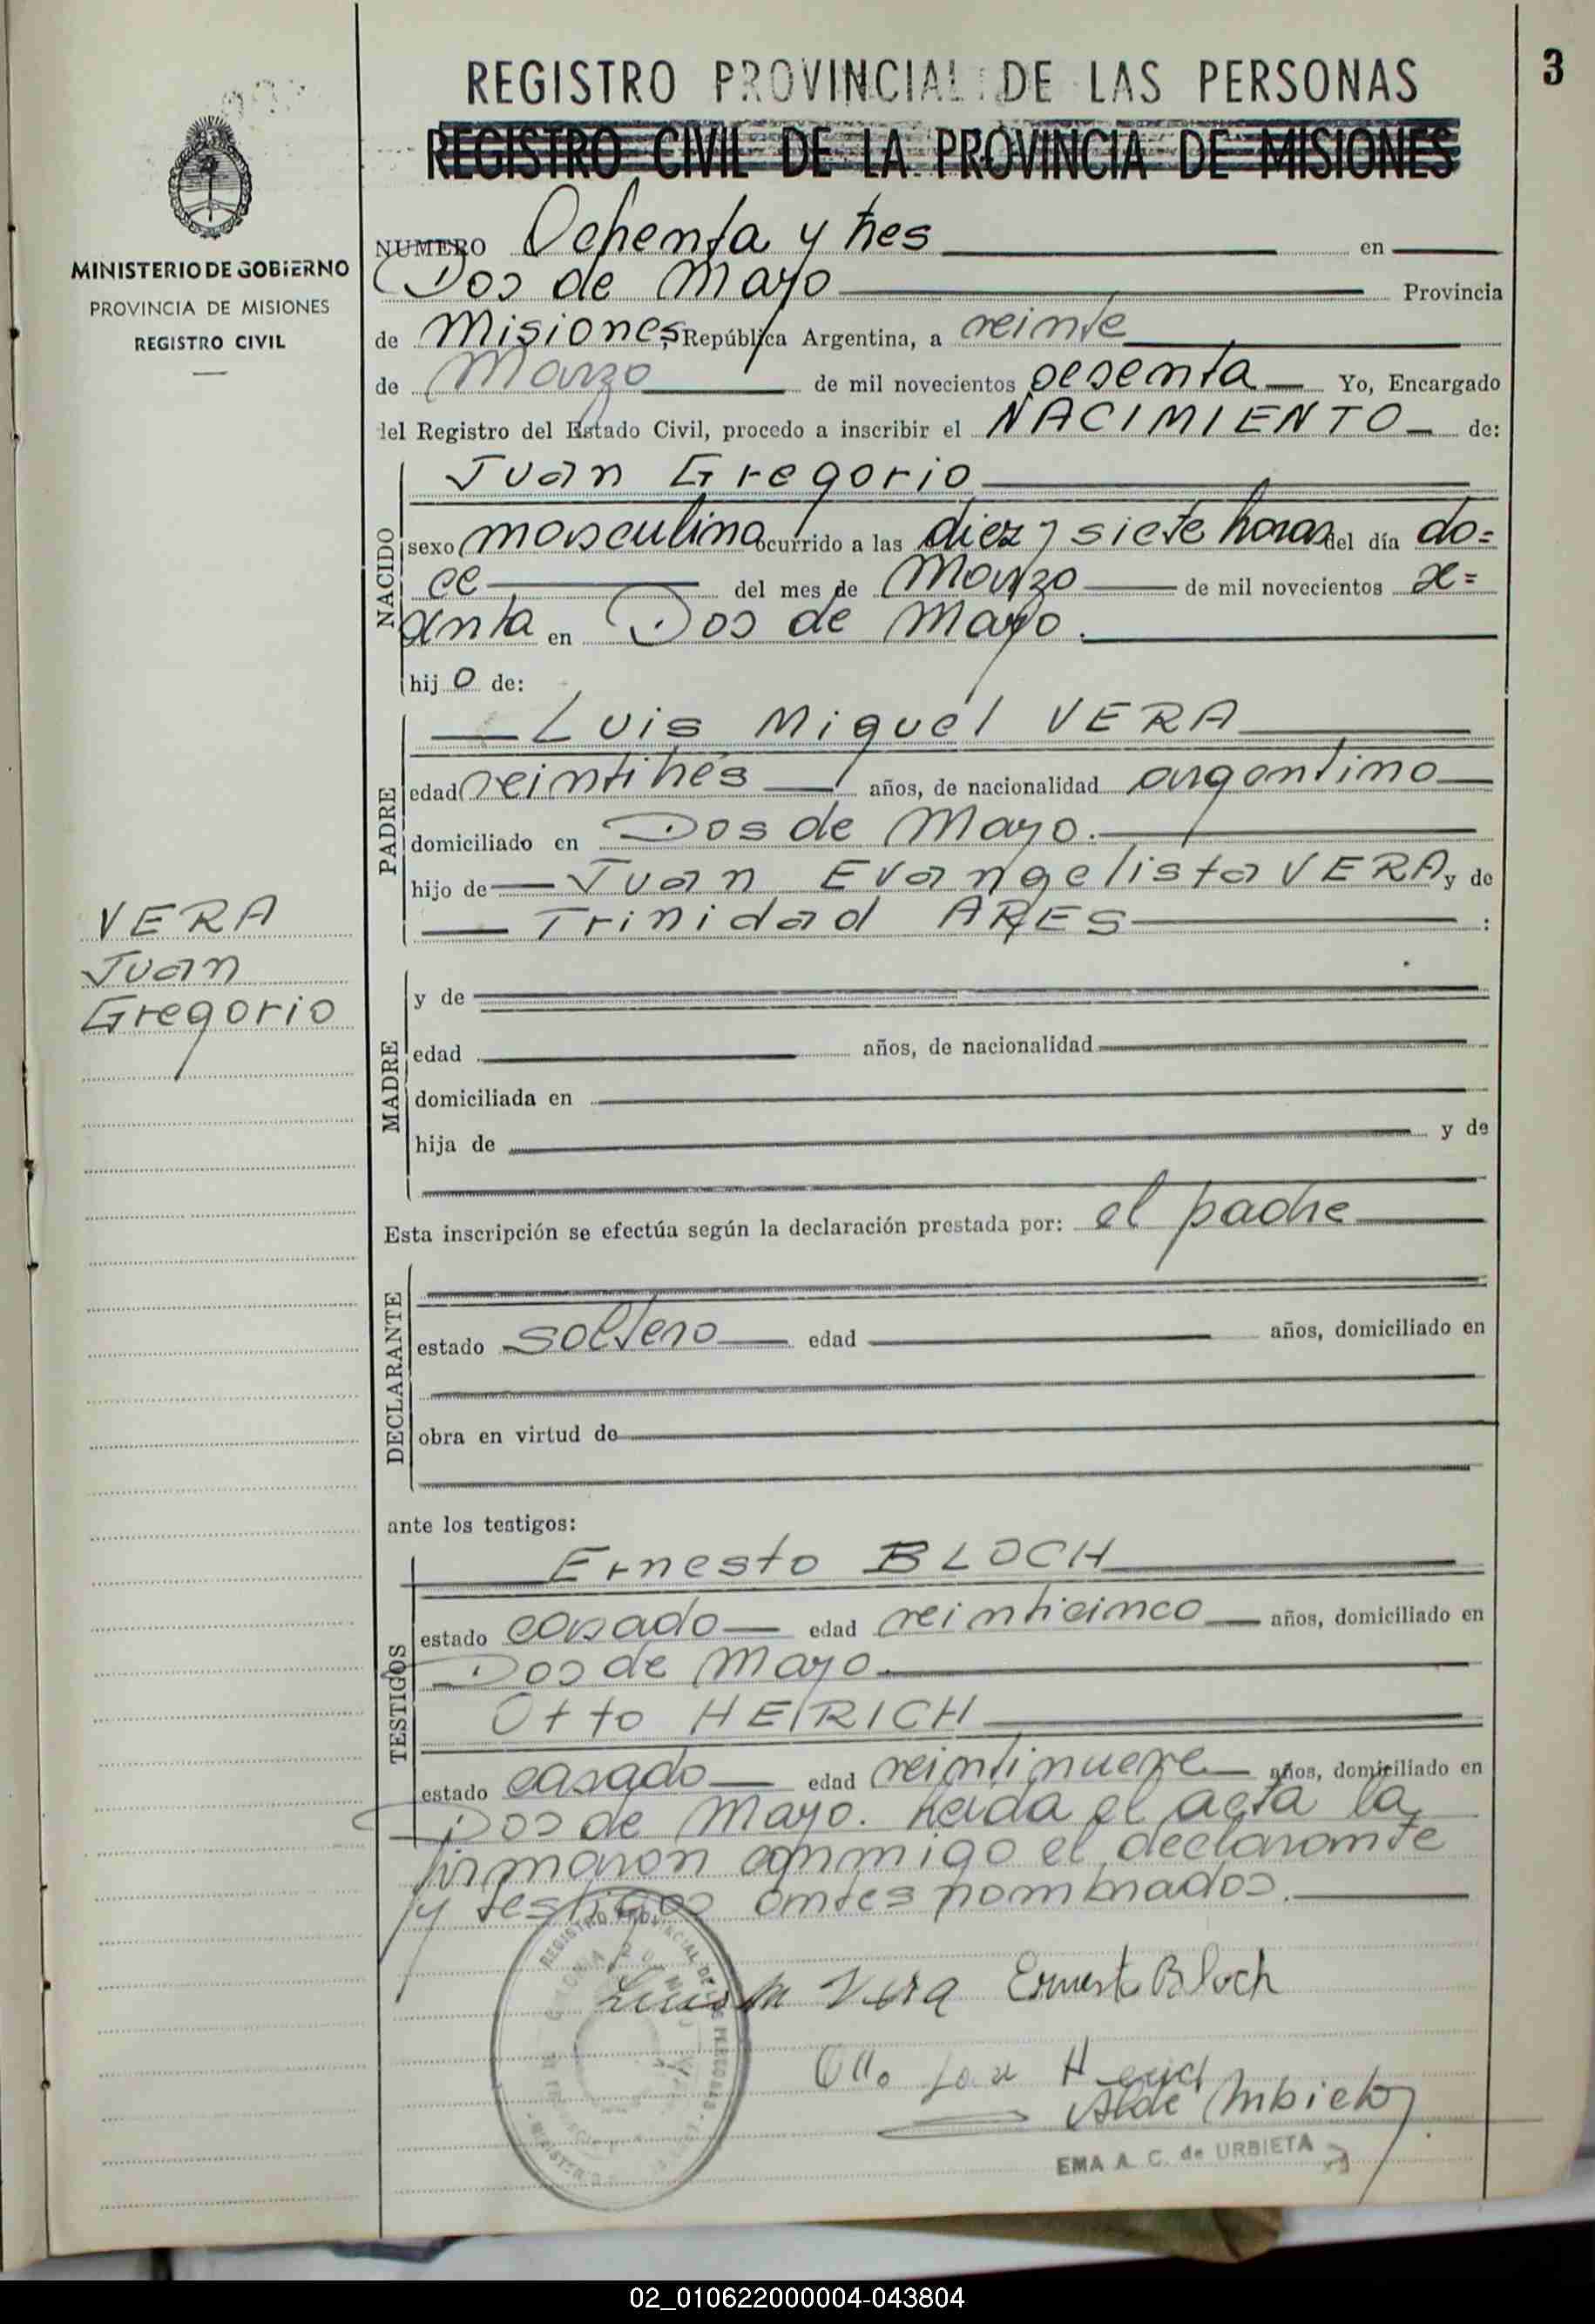 3
REGISTRO PROVINCIAL DE LAS PERSONAS
REGISTRO CIVIL DE LA PROVINCIA DE MISIONES
MINISTERIO DE GOBIERNO
PROVINCIA DE MISIONES
REGISTRO CIVIL
VERA
Juan
Gregorio
NUMERO Ochenta y tres en
Dos de Mayo Provincia
de Misiones, República Argentina, a veinte
de Marzo de mil novecientos sesenta Yo, Encargado
del Registro del Estado Civil, procedo a inscribir el NACIMIENTO de:
NACIDO
Juan Gregorio
sexo masculino ocurrido a las diez y siete horas del día do=
ce del mes de Marzo de mil novecientos se=
senta en Dos de Mayo.
hij o de:
PADRE
Luis Miguel VERA
edad veintitres años, de nacionalidad argentino
domiciliado en Dos de Mayo.
hijo de Juan Evangelista VERA y de
Trinidad ARES :
MADRE
y de
edad años, de nacionalidad
domiciliada en
hija de y de
Esta inscripción se efectúa según la declaración prestada por: el padre
DECLARANTE
estado soltero edad años, domiciliado en
obra en virtud de
ante los testigos:
TESTIGOS
Ernesto BLOCH
estado casado edad veinticinco años, domiciliado en
Dos de Mayo.
Otto HEIRICH
estado casado edad veintinueve años, domiciliado en
Dos de Mayo. Leida el acta la
firmaron conmigo el declarante
y testigos antes nombrados.
REGISTRO PROVINCIAL DE LAS PERSONAS
Luis M Vera Ernesto Bloch
Otto
EMA A. C. de URBIETA
02_010622000004-043804